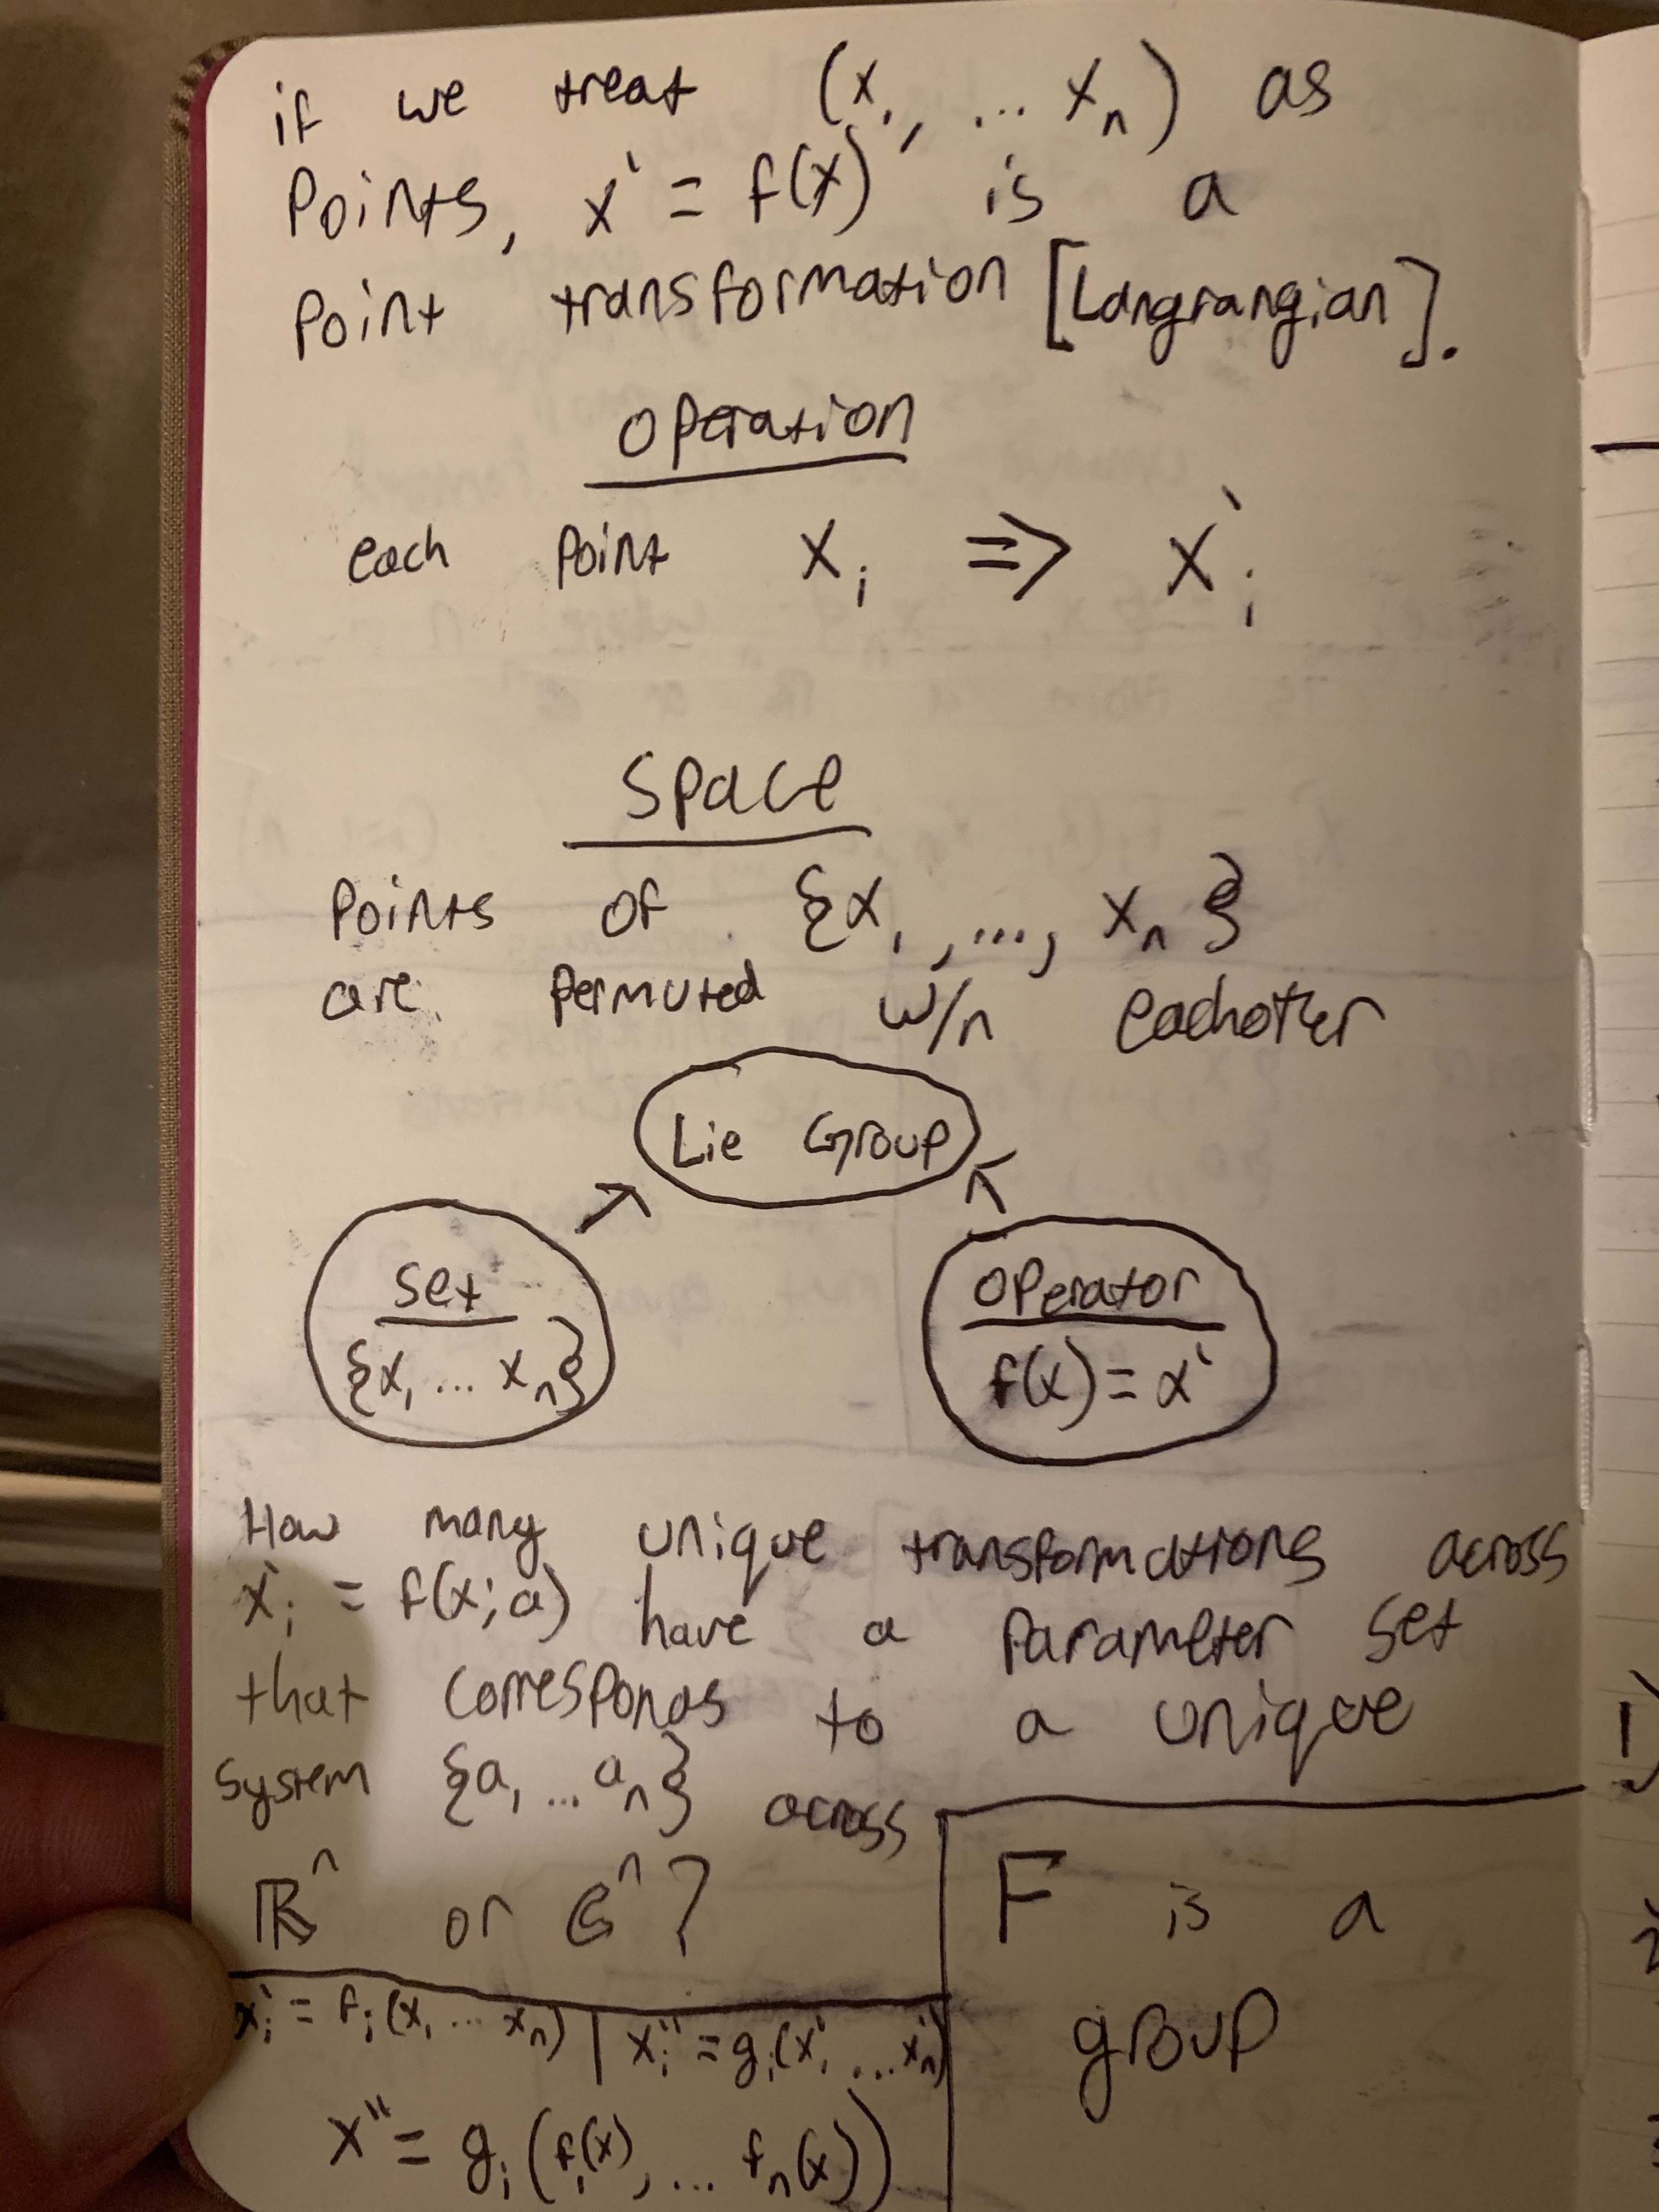 if we treat (x₁, ... xₙ) as
Points, x' = f(x) is a
Point transformation [Langrangian].
Operation
each point xᵢ => x'ᵢ
Space
Points of {x₁, ..., xₙ}
are permuted w/n eachother
Lie Group
Set
{x₁ ... xₙ}
Operator
f(x) = x'
How many unique transformations across
x'ᵢ = f(x; a) have a parameter set
that corresponds to a unique
system {a₁ ... aₙ} across
ℝⁿ or ℂⁿ?
x'ᵢ = fᵢ(x₁ ... xₙ) | x''ᵢ = gᵢ(x'₁ ... x'ₙ)
x'' = gᵢ(f₁(x), ... fₙ(x))
F is a
group
1)